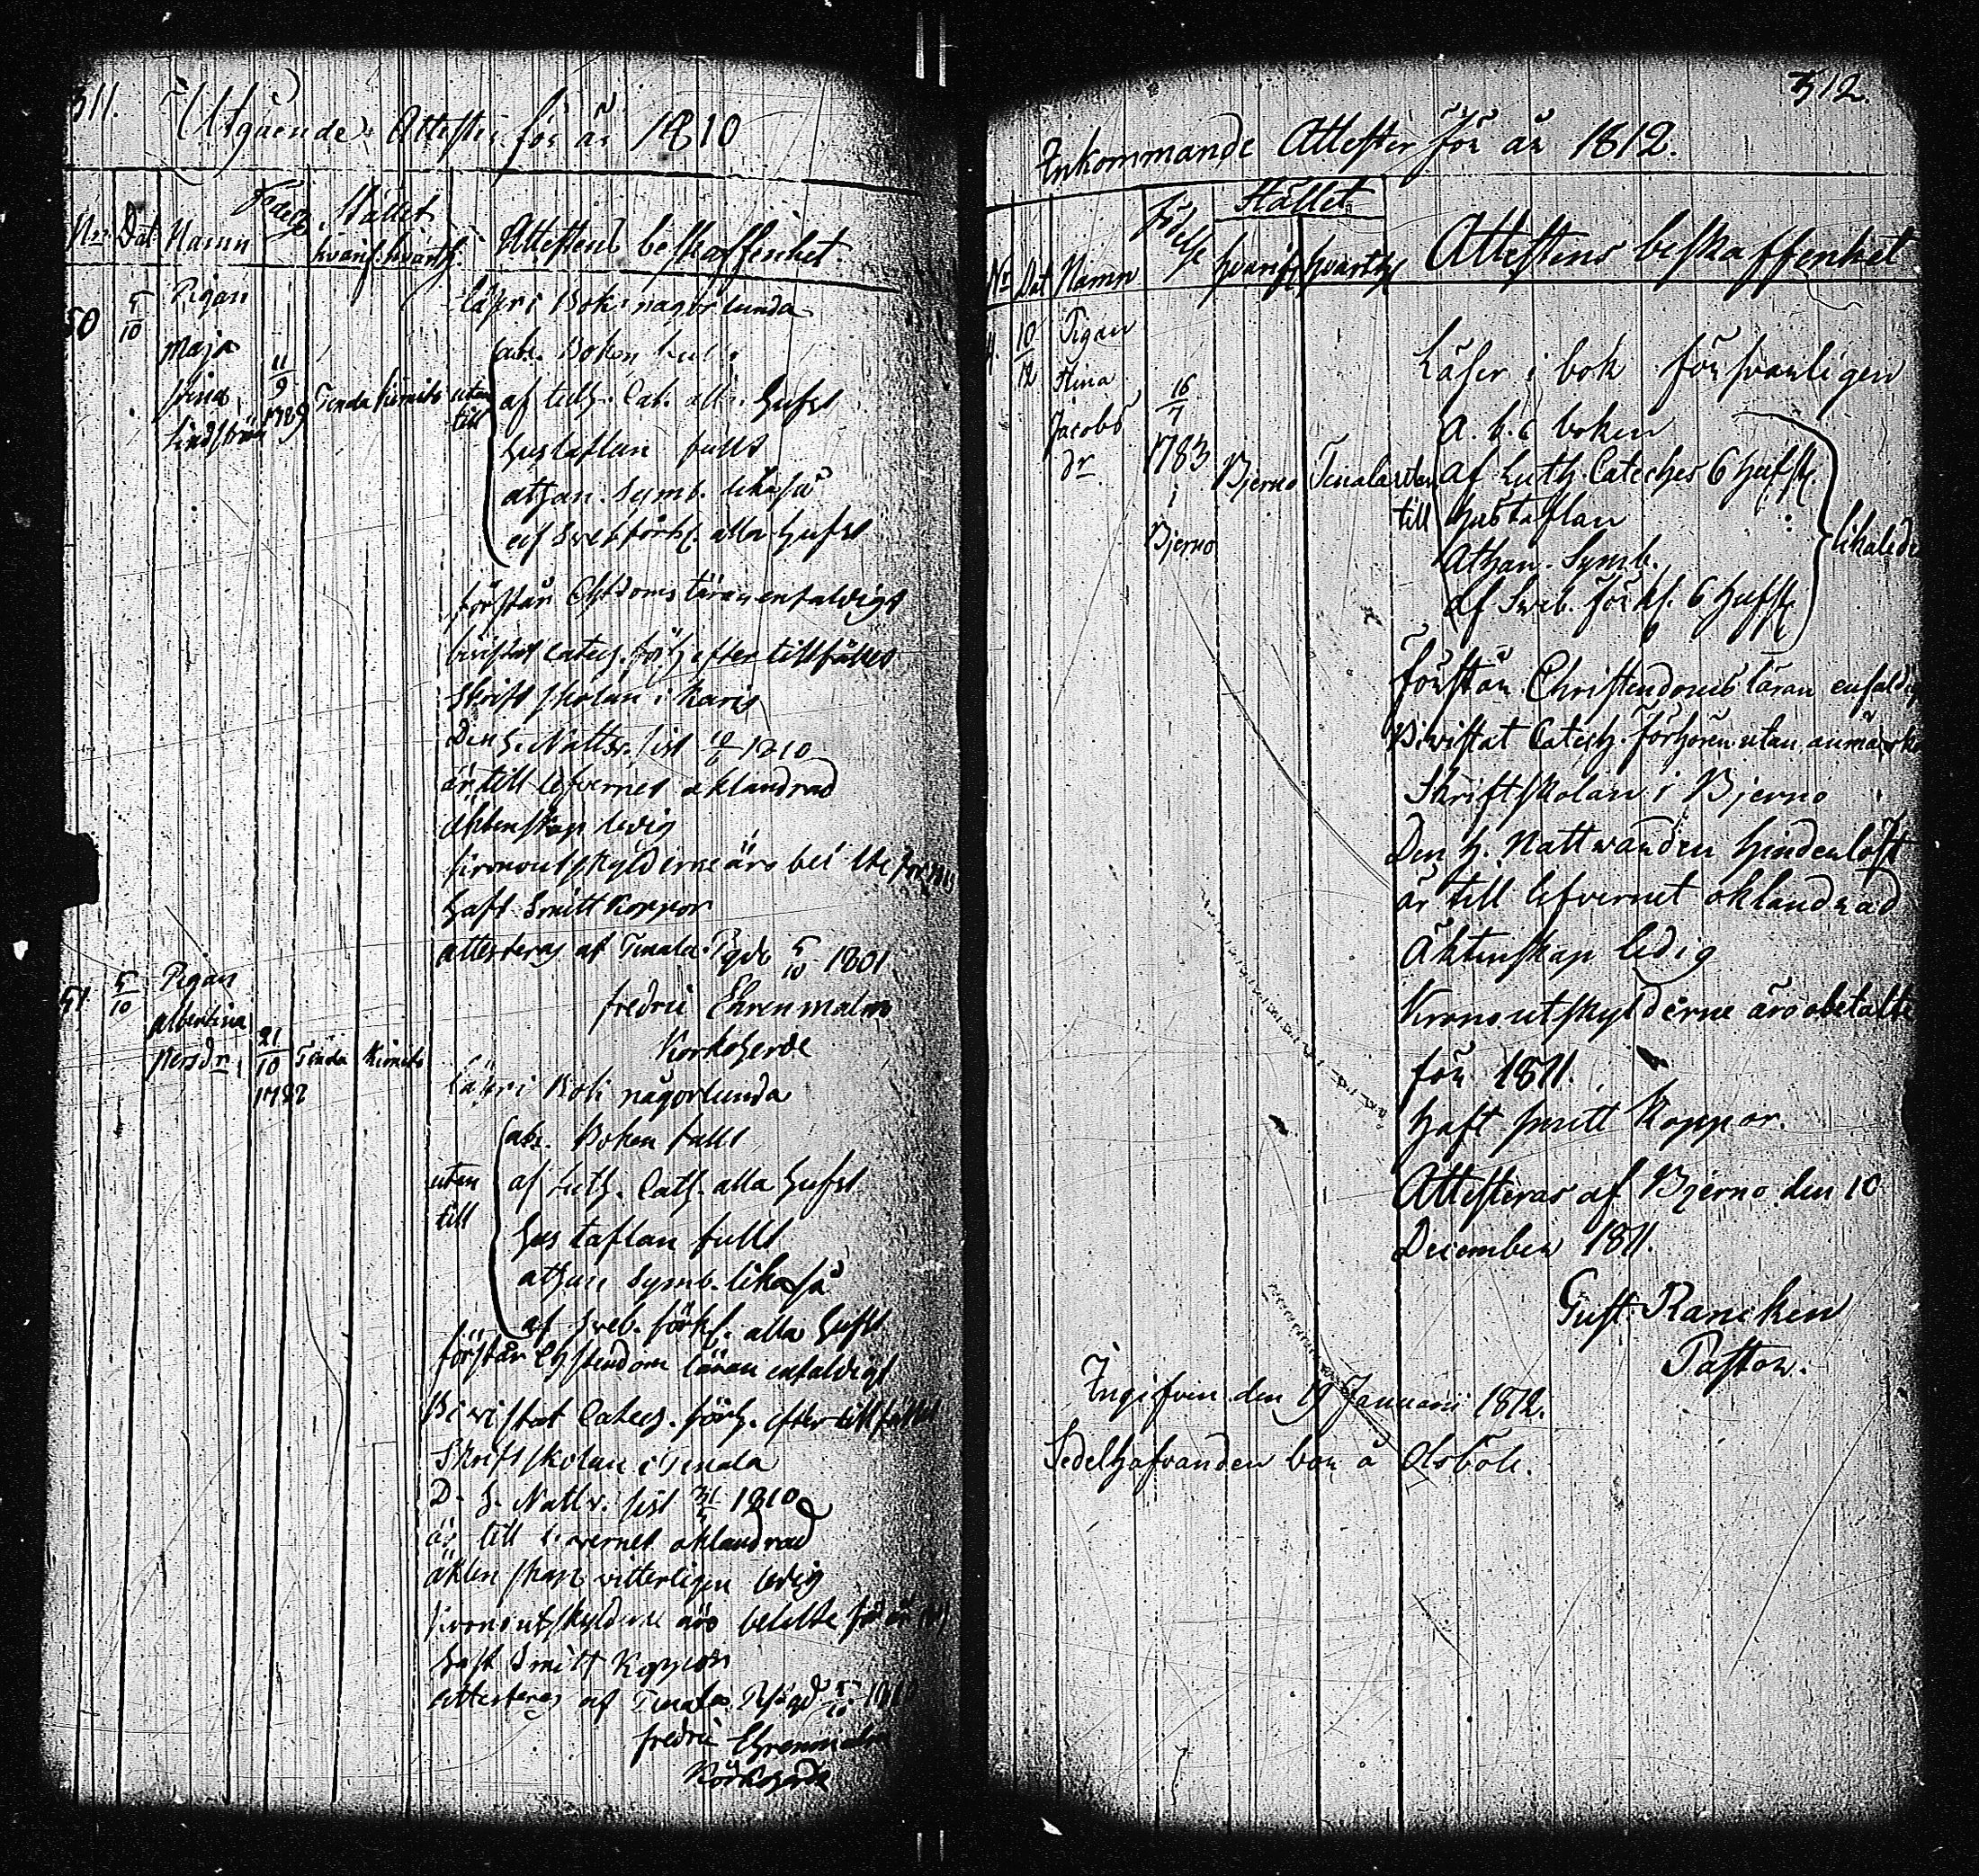 311.
Utgående Attester för år 1810
Nr Dat Namn Födelse Stället hvarifr. hvarth. Attestens beskaffenhet.
50 5/10 Pigan
Maja
Stina
Lindström
11/9 1789
Tenala Kimito
Läser i Bok någorlunda
utan till
abc. Boken fullt
af Luth. Cat. alla hufst
Hustaflan fullt
athan. Symb. likaså
af Sveb förkl. alla hufst
förstår Chstdoms läran enfaldigt
bivistat Catech. förh. efter tillfället
Skrift skolan i Karis
Den h. Nattv. sist 1810
är till lefvernet oklandrad
äktenskap ledig
Kronoutskylderne äro
haft Smitt Koppor
attesteras af Tenala Pgdl 5/10 1801
fredric Ehrenmalm
Korkoherde
51 5/10 Pigan
Albertina
Persdr
21/10
Tenala Kimito
Läser i Bok någorlunda
utan till
abc. Boken fullt
af Luth. Cath. alla hufst
Hustaflan fullt
athan Symb. likaså
af Sveb. förkl. alla hufst
förstår Chstendoms läran enfaldigt
Bivistat Catech. förh. efter tillfället
Skriftskolan i Tenala
D. h. Nattv. sist 1810
är till levernet oklandrad
äktenskap vitterligen ledig
Kronoutskylderne äro betalte för år
haft Smitt Koppor
attesteras af Tenala
fredric Ehrenmalm
Körkoherde
312.
Inkommande Attester för år 1812.
Stället
Nr Dat Namn Födelse hvarifr hvarth Attestens beskaffenhet
4. 10/12 Pigan
Stina
Jacobs
dr
16/7
1783
i
Bjerno
Bjerno Tenala
Läser i bok försvarligen
utan till
A. b. c boken
af Luth. Cateches 6 hufst.
Hustaflan
Athan. Symb.
af Sveb. förkl. 6 hufst
likaledes
förstår Christendoms läran enfaldig
Bivistat Catech. Förhören utan anmärkn
Skriftskolan i Bjerno
Den h. Nattwarden hinderlöst
är till lefvernet oklandrad
Äktenskap ledig
Kronoutskylderne äro obetalte
för 1811.
haft smitt Koppor.
Attesteras af Bjerno den 10
December 1811.
Gust. Rancken
Pastor.
Ingifven den 19 Januarii 1812.
Sedelhafvanden bor å Olsböle.